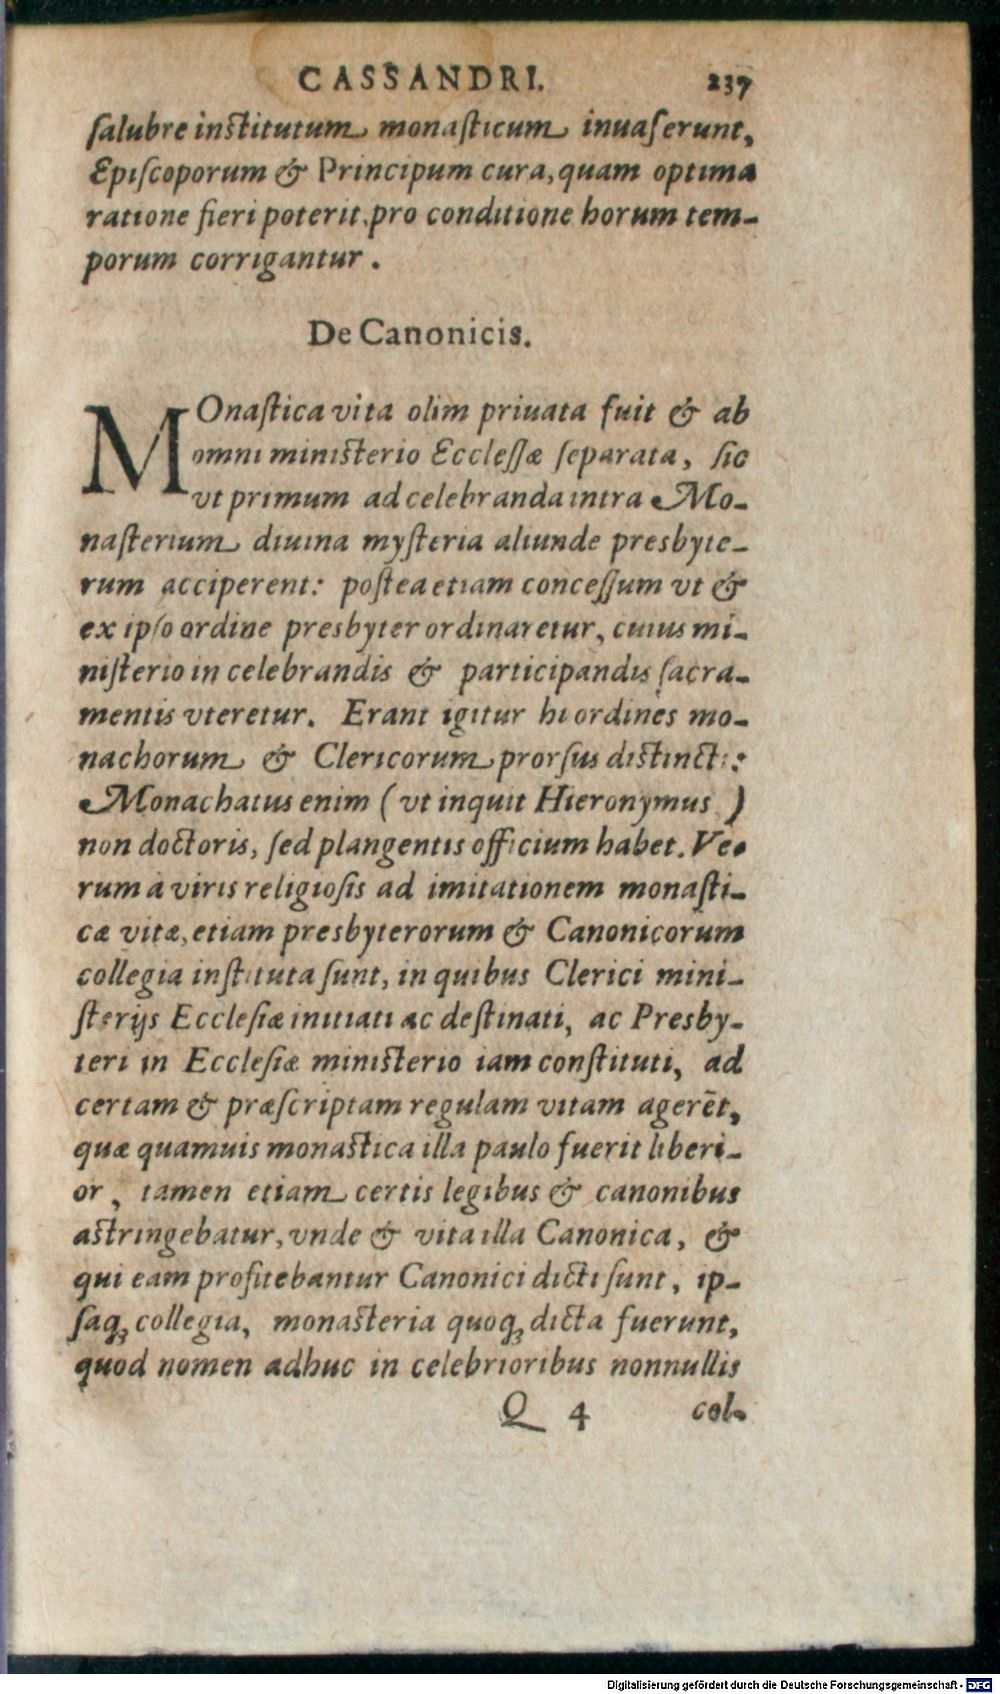 CASSANDRI. 237
ſalubre inſtitutum monaſticum inuaſerunt,
Epiſcoporum & Principum cura, quam optima
ratione fieri poterit, pro conditione horum tem-
porum corrigantur.
De Canonicis.
MOnaſtica vita olim priuata fuit & ab
omni miniſterio Eccleſſæ ſeparata, ſic
vt primum ad celebranda intra Mo-
naſterium diuina myſteria aliunde presbyte-
rum acciperent: poſtea etiam conceſſum vt &
ex ipſo ordine presbyter ordinaretur, cuius mi-
niſterio in celebrandis & participandis ſacra-
mentis vteretur. Erant igitur hi ordines mo-
nachorum & Clericorum prorſus diſtincti:
Monachatus enim (vt inquit Hieronymus)
non doctoris, ſed plangentis officium habet. Ve-
rum à viris religioſis ad imitationem monaſti-
cæ vitæ, etiam presbyterorum & Canonicorum
collegia inſtituta ſunt, in quibus Clerici mini-
ſterijs Eccleſiæ initiati ac deſtinati, ac Presby-
teri in Eccleſiæ miniſterio iam conſtituti, ad
certam & præſcriptam regulam vitam agerēt,
quæ quamuis monaſtica illa paulo fuerit liberi-
or, tamen etiam certis legibus & canonibus
aſtringebatur, vnde & vita illa Canonica, &
qui eam profitebantur Canonici dicti ſunt, ip-
ſaqꝫ collegia, monaſteria quoqꝫ dicta fuerunt,
quod nomen adhuc in celebrioribus nonnullis
Q 4 col-
Digitalisierung gefördert durch die Deutsche Forschungsgemeinschaft - DFG